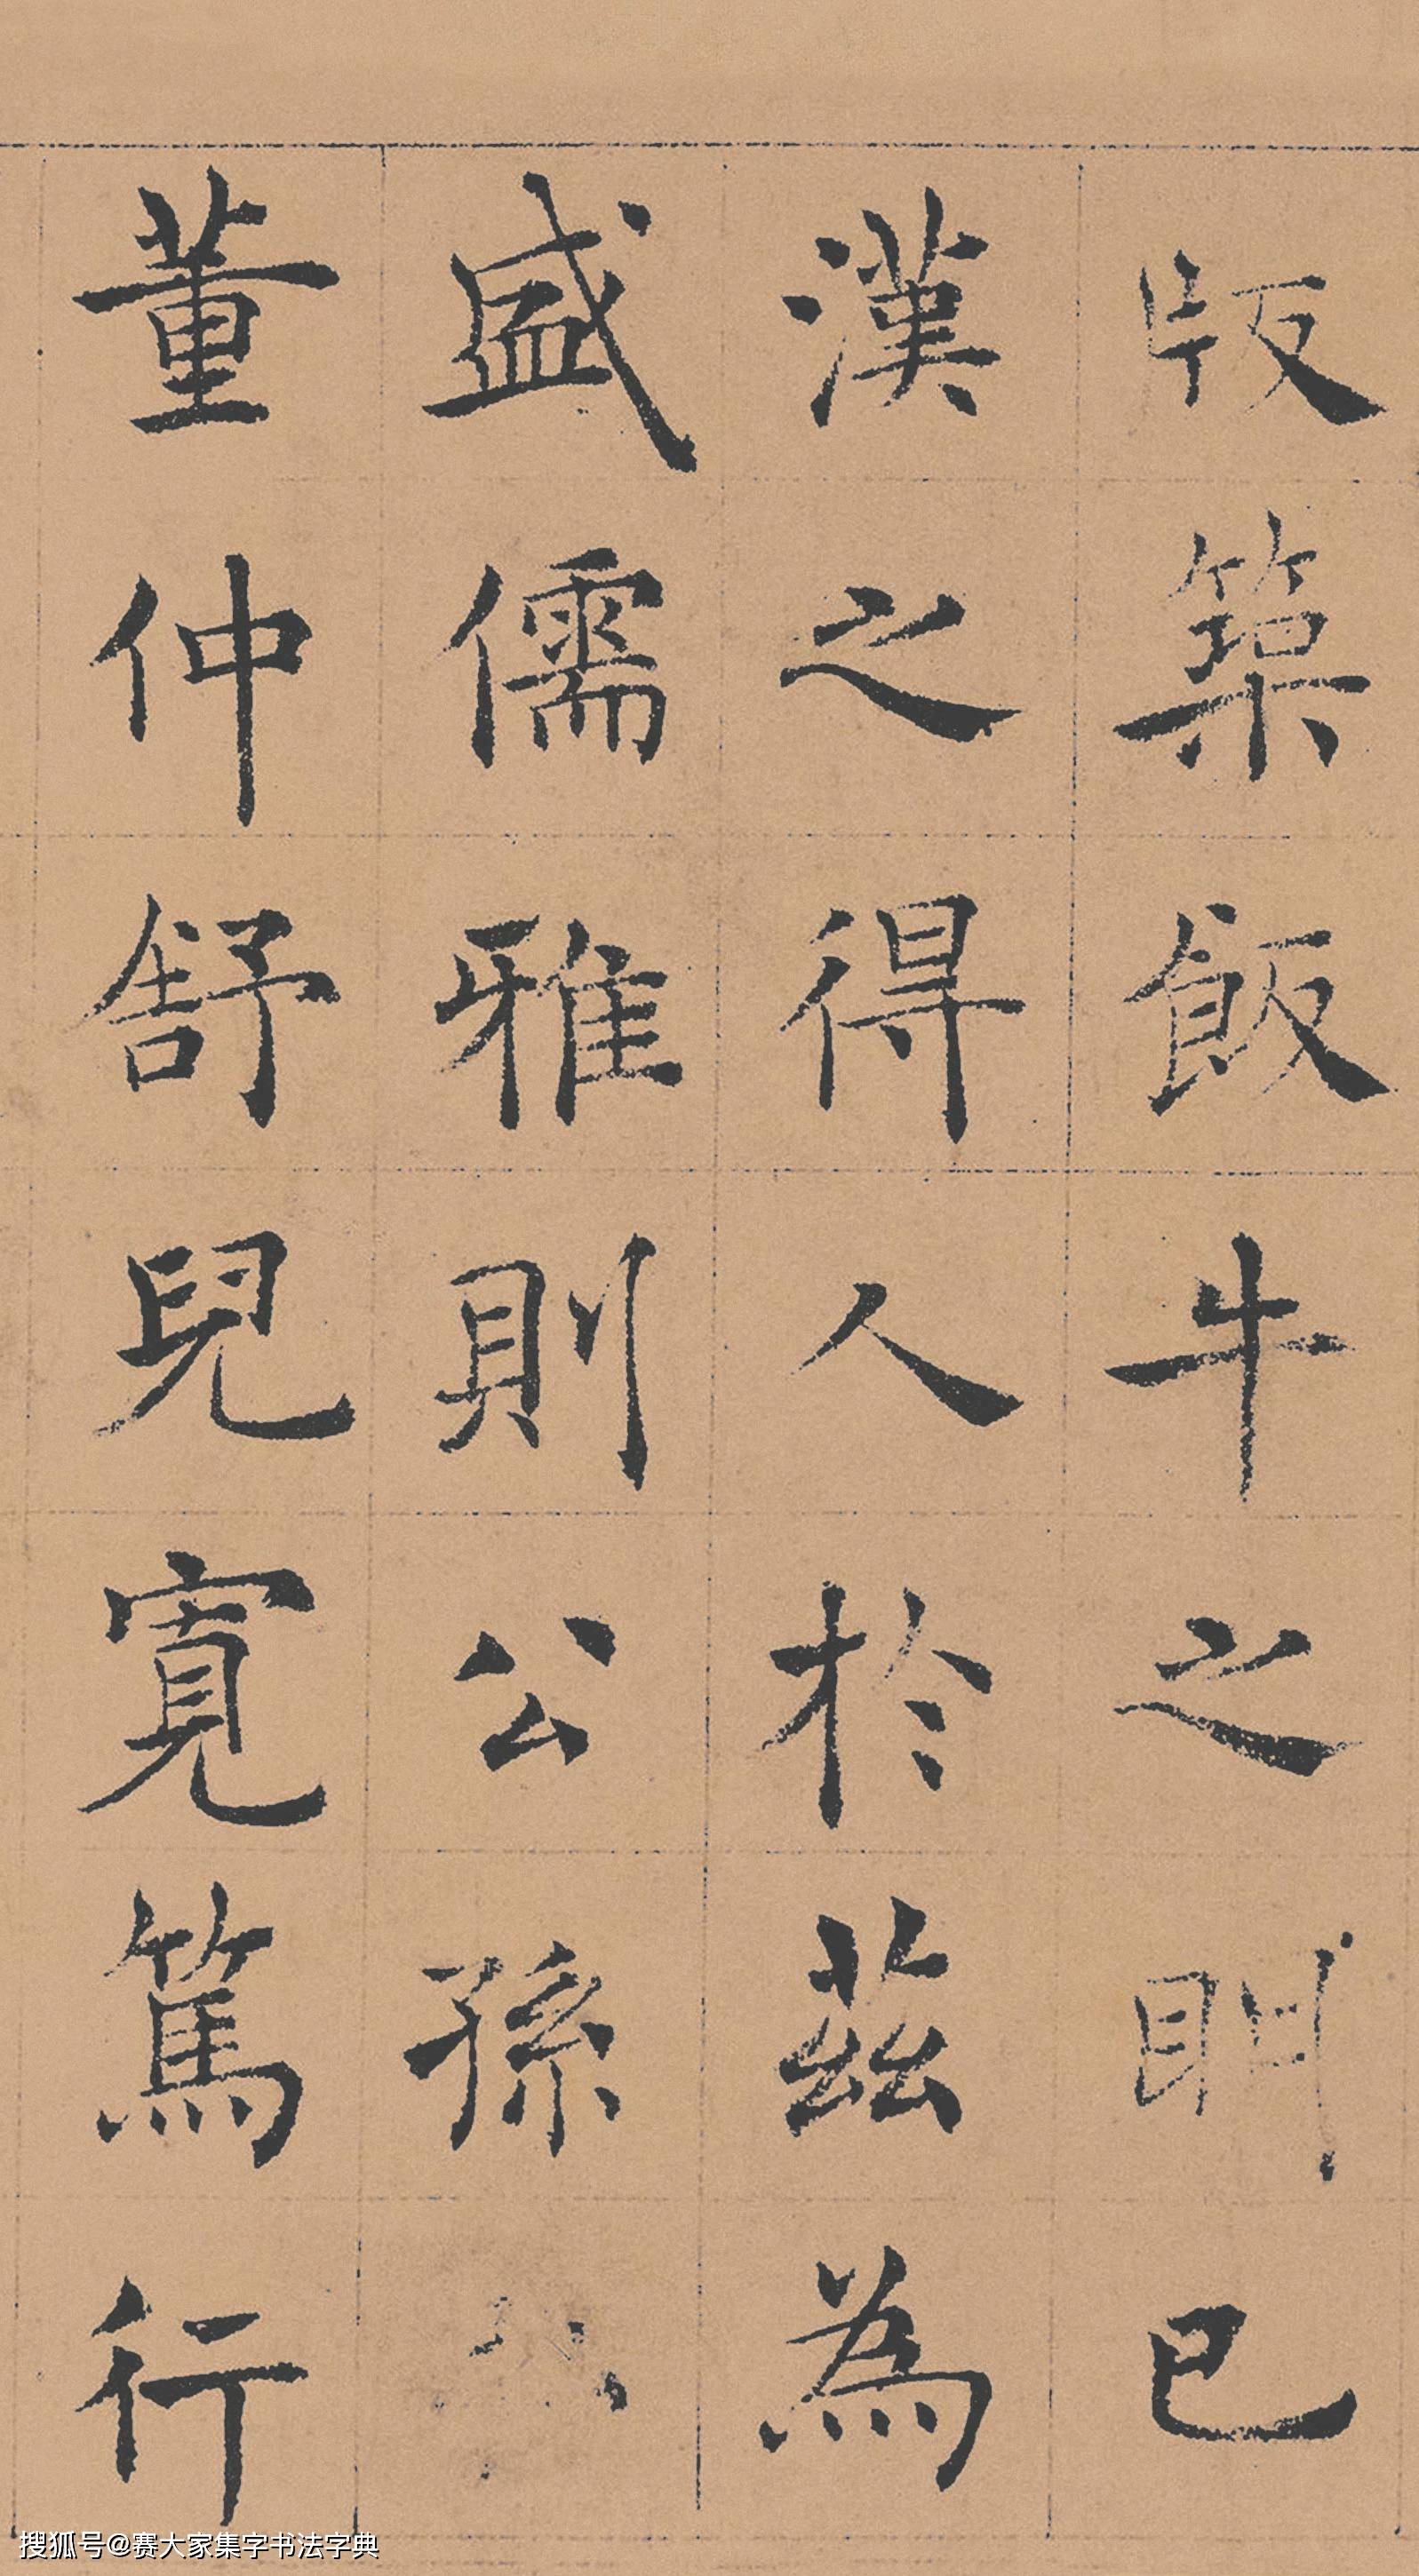 版築飯牛之明已
漢之得人於茲為
盛儒雅則公孫
董仲舒兒寬篤行
搜狐号@赛大家集字书法字典